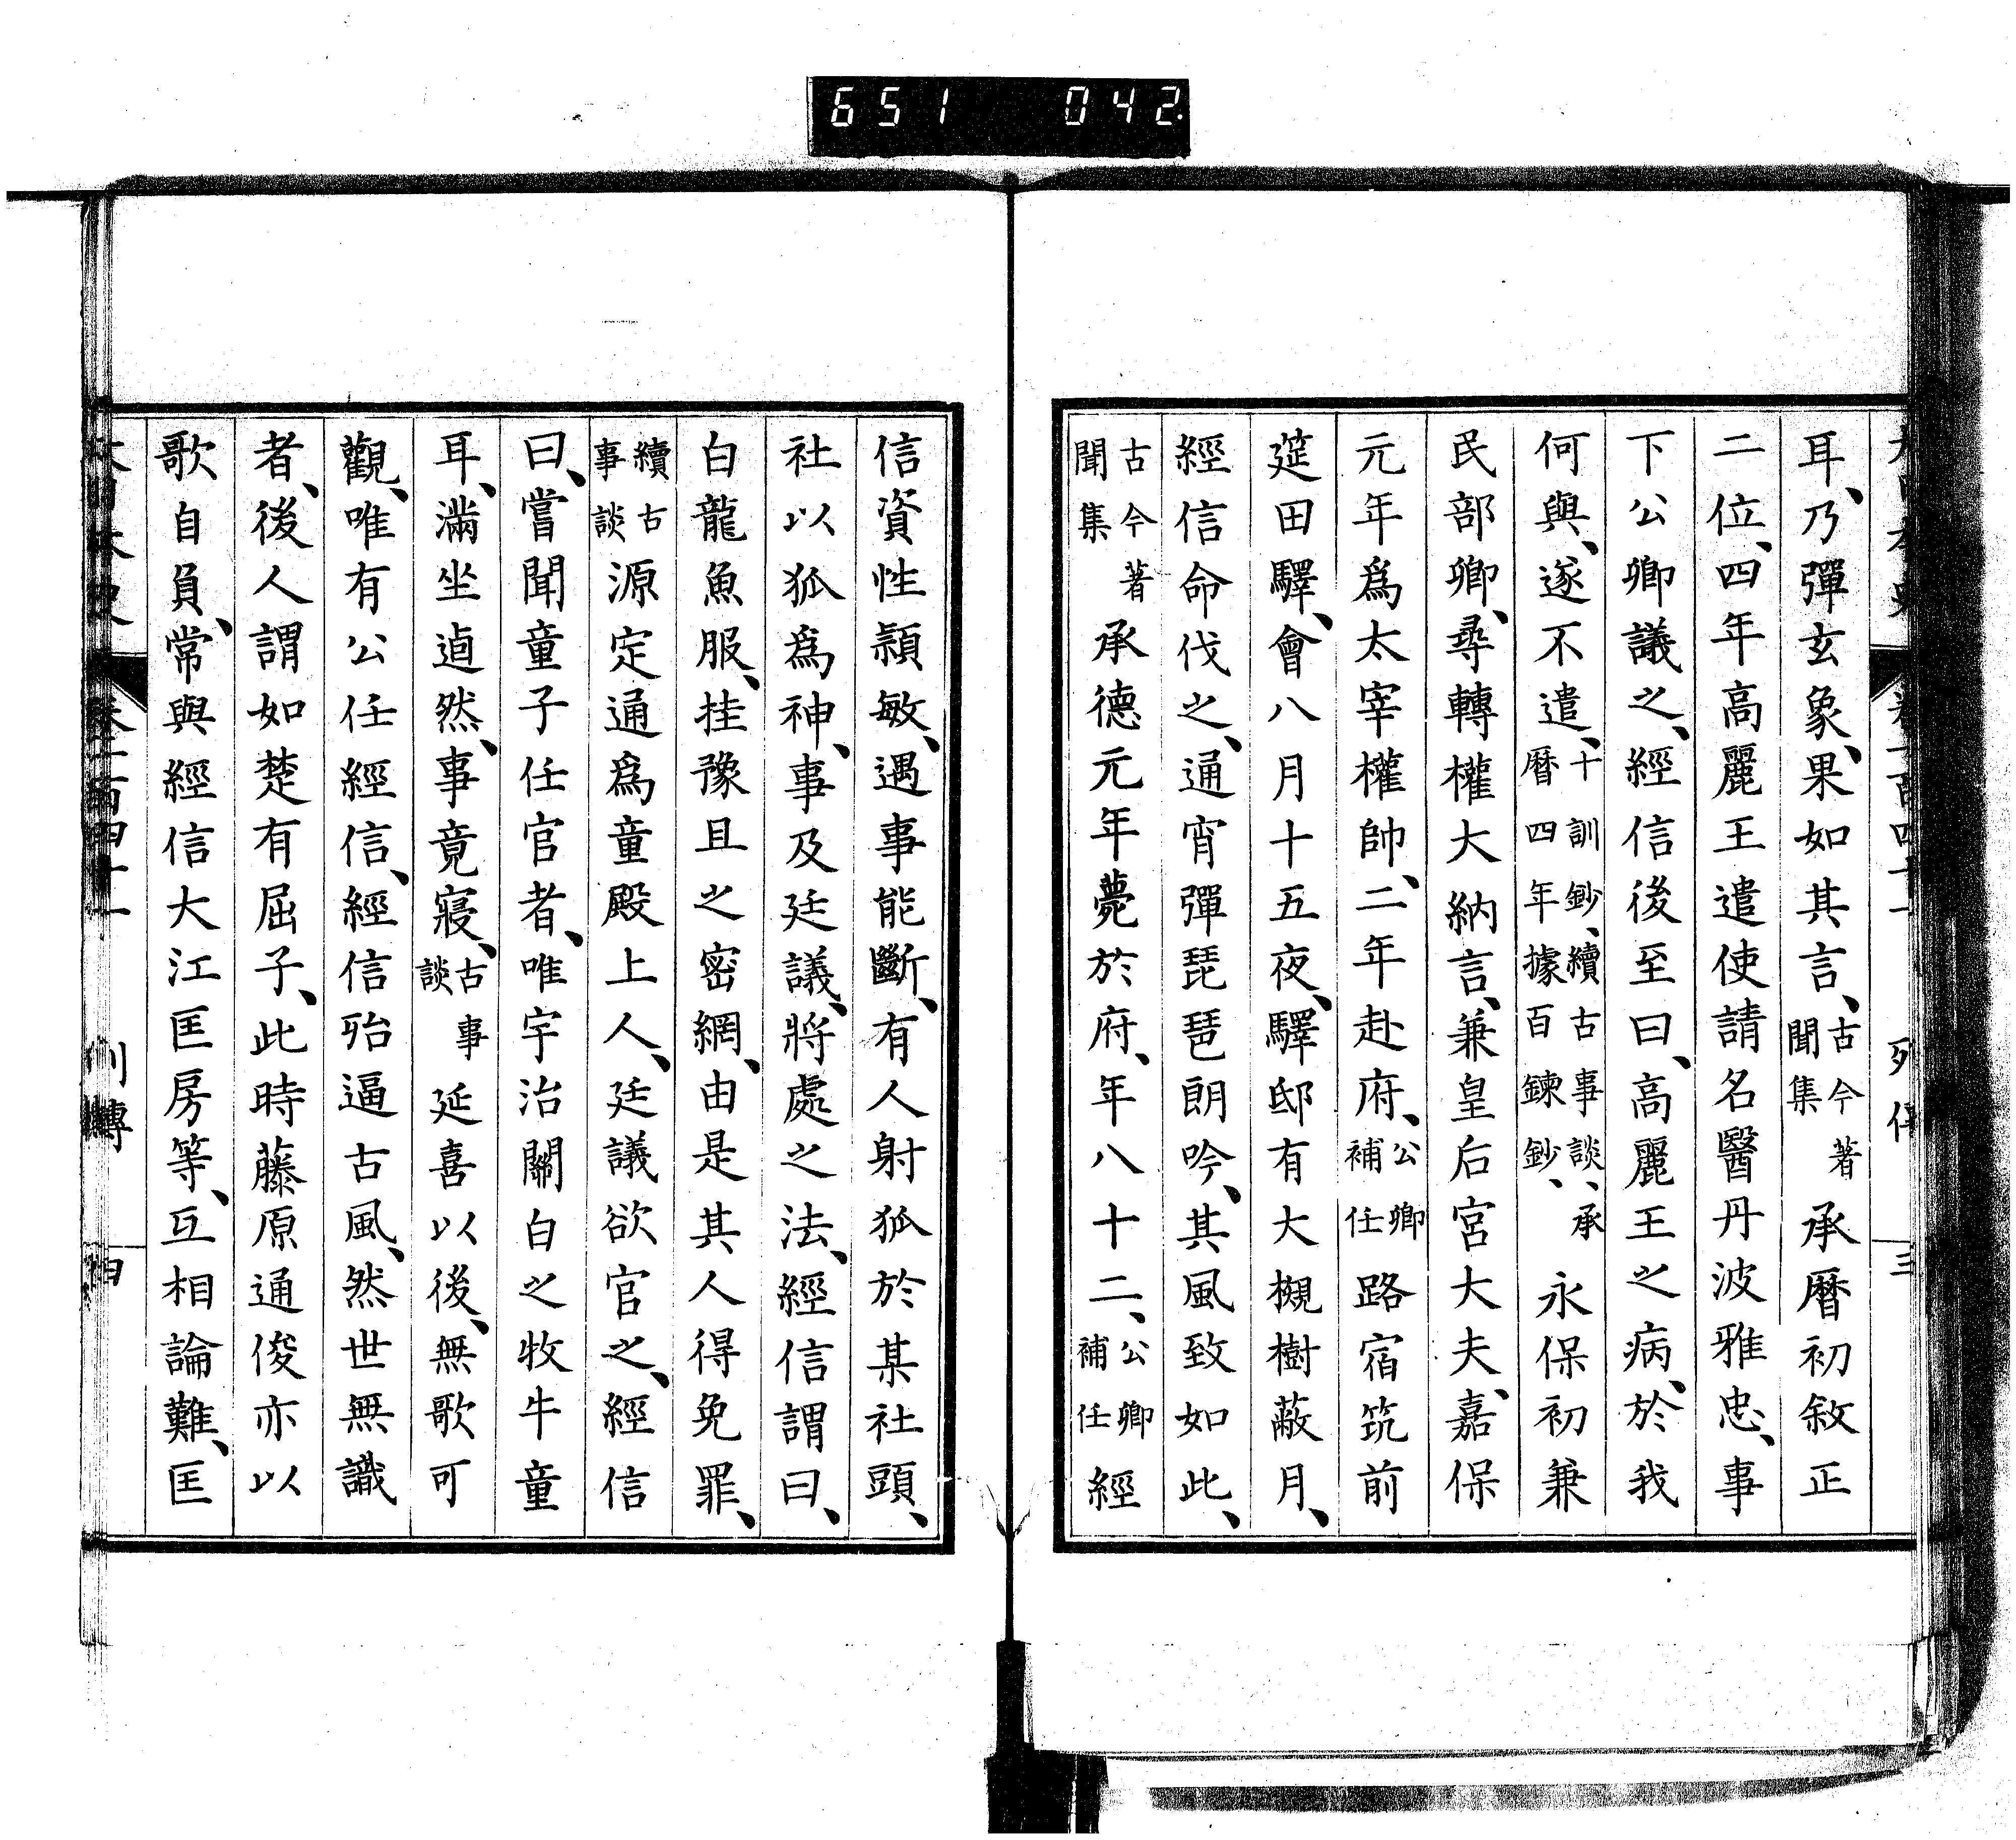 651 042
大日本史 卷一百四十一 列傳 三
耳、乃彈玄象、果如其言、古今著聞集承曆初敘正
二位、四年高麗王遣使請名醫丹波雅忠、事
下公卿議之、經信後至曰、高麗王之病、於我
何與、遂不遣、十訓鈔、續古事談、承曆四年據百鍊鈔、永保初兼
民部卿、尋轉權大納言、兼皇后宮大夫、嘉保
元年爲太宰權帥、二年赴府、公卿補任路宿筑前
莚田驛、會八月十五夜、驛邸有大槻樹蔽月、
經信命伐之、通宵彈琵琶朗吟、其風致如此、
古今著聞集承德元年薨於府、年八十二、公卿補任經
信資性潁敏、遇事能斷、有人射狐於某社頭、
社以狐爲神、事及廷議、將處之法、經信謂曰、
白龍魚服、挂豫且之密網、由是其人得免罪、
續古事談源定通爲童殿上人、廷議欲官之、經信
曰、嘗聞童子任官者、唯宇治關白之牧牛童
耳、滿坐逌然、事竟寢、古事談延喜以後、無歌可
觀、唯有公任經信、經信殆逼古風、然世無識
者、後人謂如楚有屈子、此時藤原通俊亦以
歌自負、常與經信大江匡房等、互相論難、匡
大日本史 卷一百四十一 列傳 四